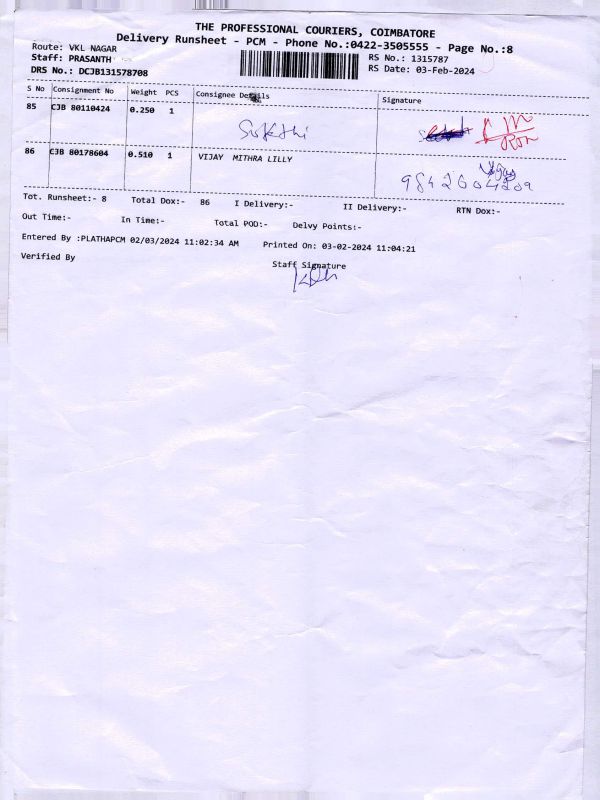 THE PROFESSIONAL COURIERS, COIMBATORE
Delivery Runsheet - PCM - Phone No.:0422-3505555 - Page No.:8
Route: VKL NAGAR RS No.: 1315787
Staff: PRASANTH RS Date: 03-Feb-2024
DRS No.: DCJB131578708
S No Consignment No Weight PCS Consignee Details Signature
85 CJB 80110424 0.250 1
86 CJB 80178604 0.510 1 VIJAY MITHRA LILLY
Tot. Runsheet:- 8 Total Dox:- 86 I Delivery:- II Delivery:- RTN Dox:-
Out Time:- In Time:- Total POD:- Delvy Points:-
Entered By :PLATHAPCM 02/03/2024 11:02:34 AM Printed On: 03-02-2024 11:04:21
Verified By Staff Signature